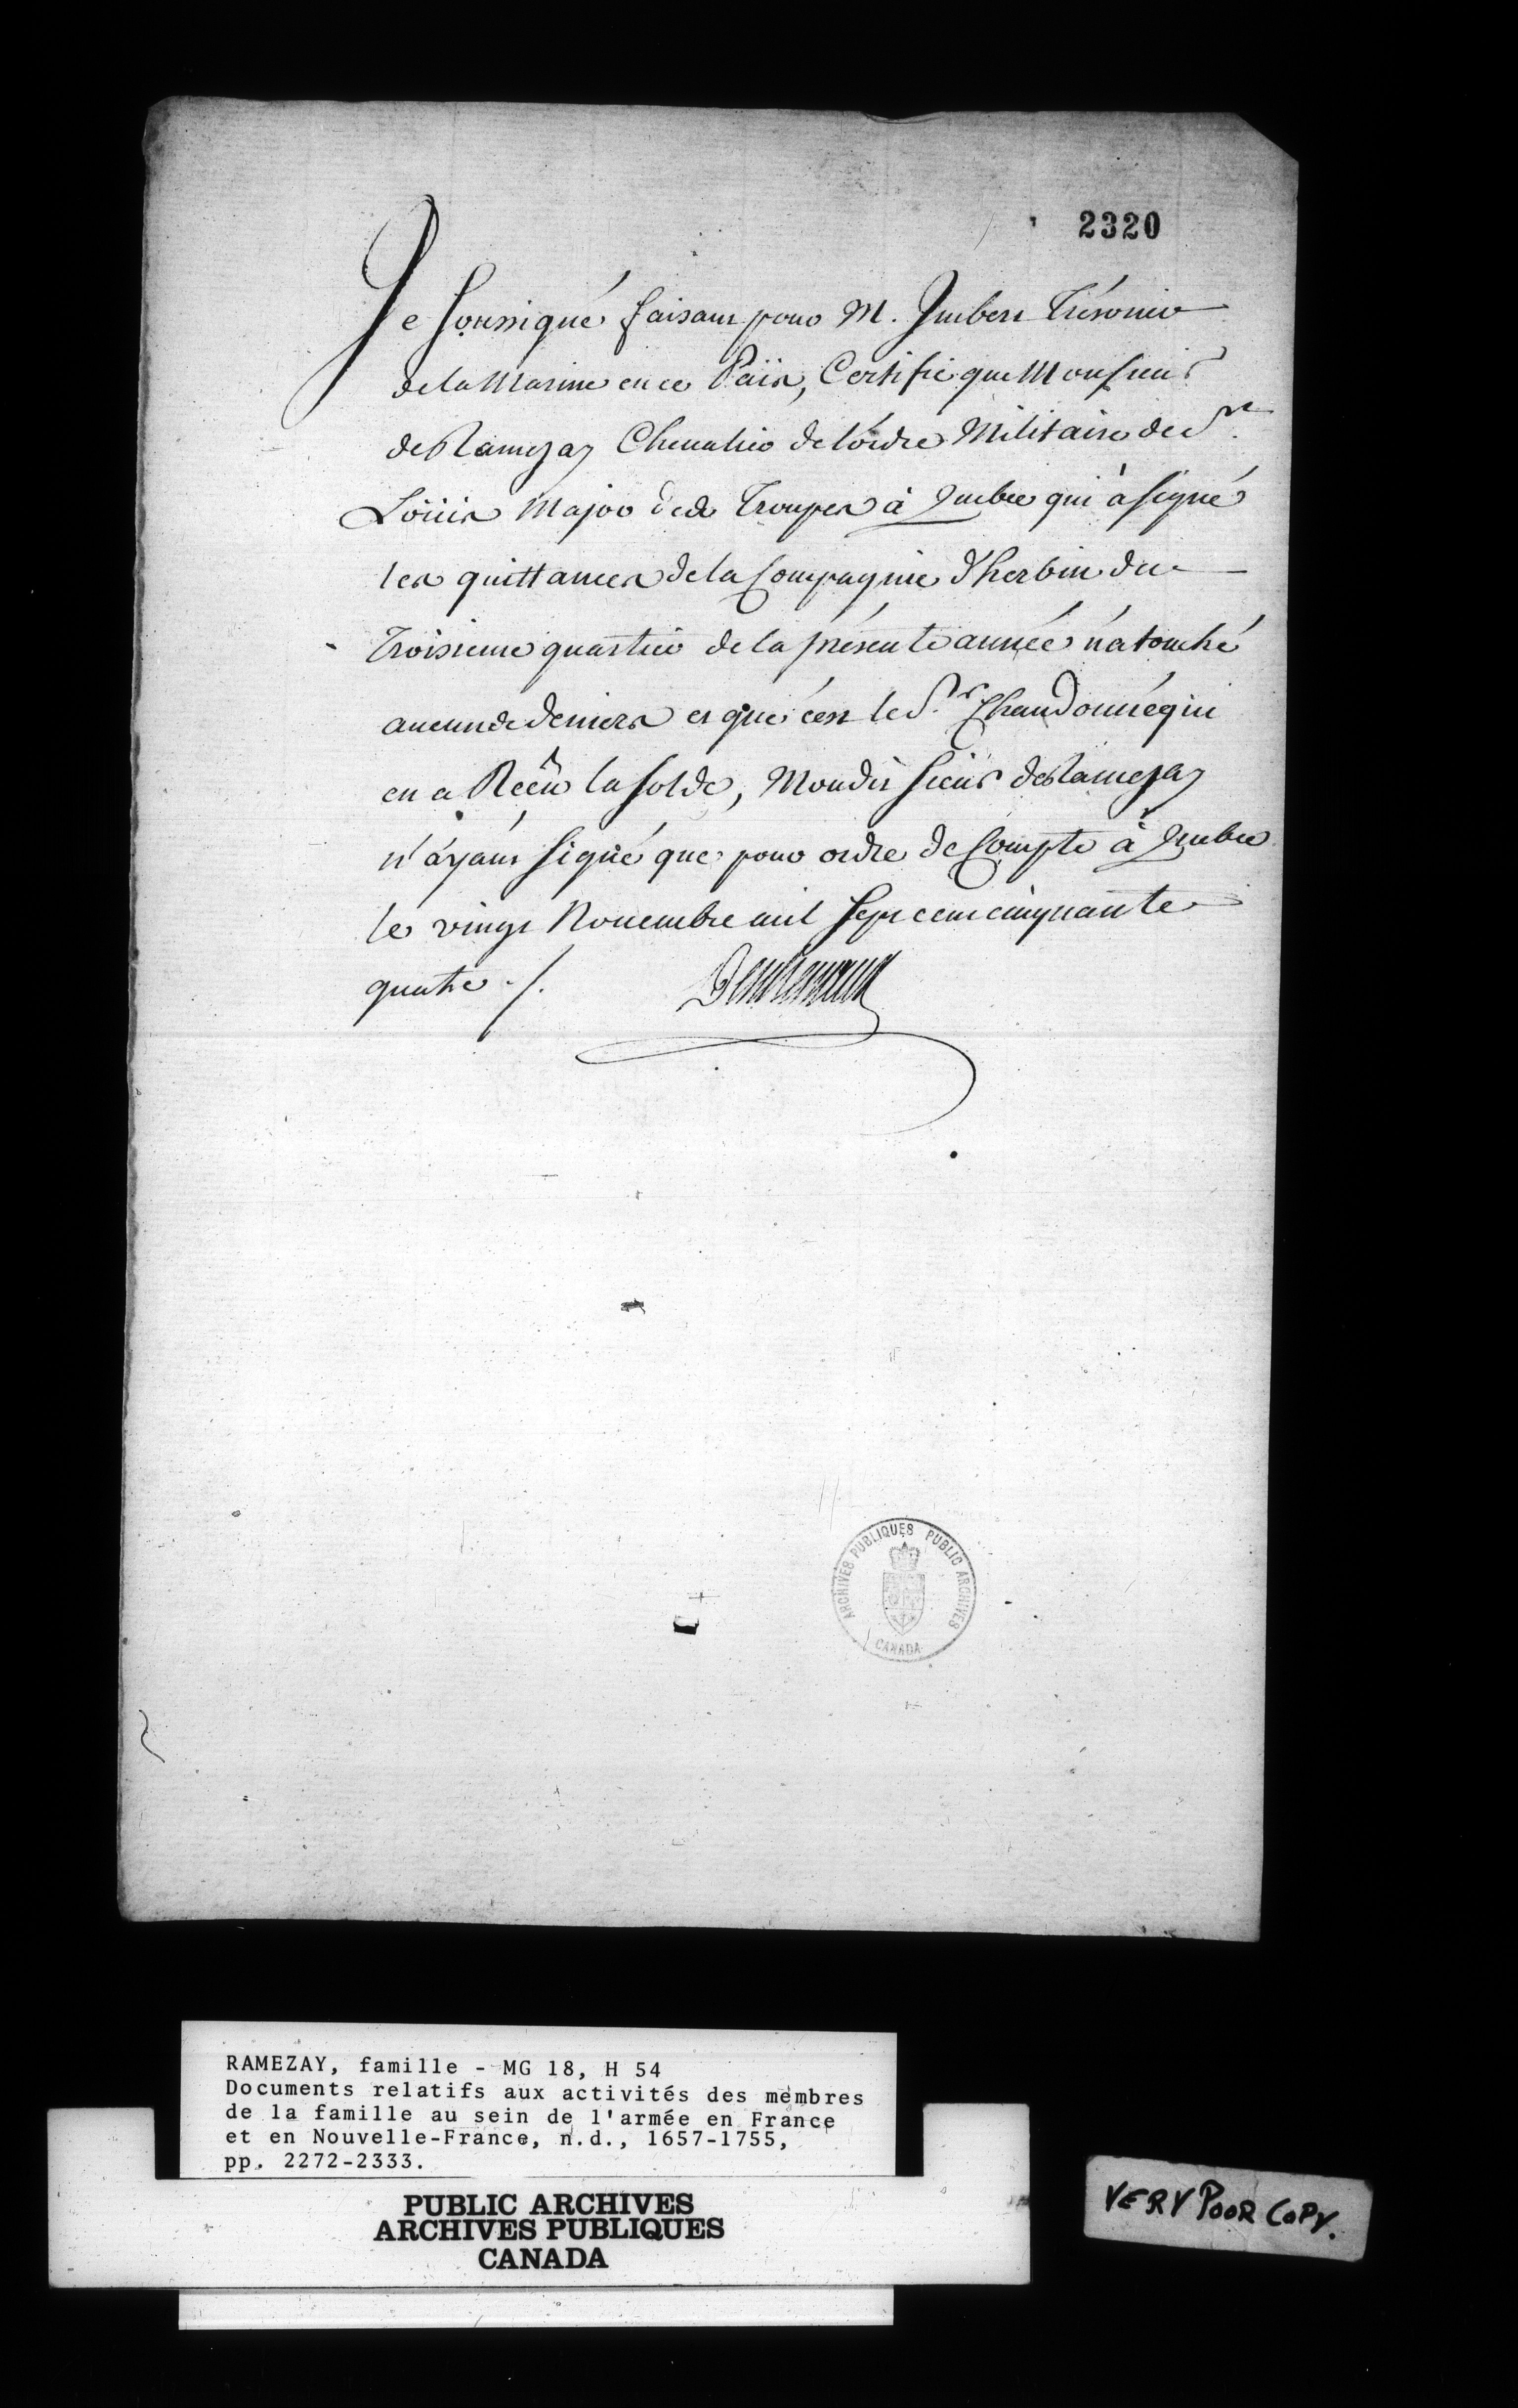 2320
Je soussigné faisant pour M. Imbert Trésorier
de la Marine en ce Païs, Certifie que Monsieur
de Ramezay Chevalier de l'ordre Militaire de St.
Loüis Major des Troupes à Quebec qui à signé
les quittances de la Compagnie d'herbin du
Troisieme quartier de la présente année n'a touché
aucuns deniers et que c'est le Sr. Chandonné qui
en a Reçu la solde, Mondit sieur de Ramezay
n'ayant signé que pour ordre de Compte à Quebec
le vingt Novembre mil sept cent cinquante
quatre ./.
ARCHIVES PUBLIQUES PUBLIC ARCHIVES
CANADA
RAMEZAY, famille - MG 18, H 54
Documents relatifs aux activités des membres
de la famille au sein de l'armée en France
et en Nouvelle-France, n.d., 1657-1755,
pp. 2272-2333.
PUBLIC ARCHIVES
ARCHIVES PUBLIQUES
CANADA
VERY POOR COPY.